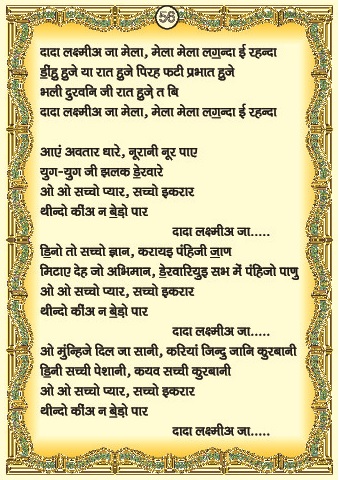 56
दादा लक्ष्मीअ जा मेला, मेला मेला लग॒न्दा ई रहन्दा
डी॒ंहु हुजे या रात हुजे पिरह फटी प्रभात हुजे
भली दुरवनि जी रात हुजे त बि
दादा लक्ष्मीअ जा मेला, मेला मेला लग॒न्दा ई रहन्दा
आएं अवतार धारे, नूरानी नूर पाए
युग-युग नी झलक डे॒रवारे
ओ ओ सच्चो प्यार, सच्चो इकरार
थीन्दो कीअं न बे॒ड़ो पार
दादा लक्ष्मीअ जा.....
डि॒नो तो सच्चो ज्ञान, करायइ पंहिजी जा॒ण
मिटाए देह जो अभिमान, डे॒रवारियुइ सभ में पंहिजो पाणु
ओ ओ सच्चो प्यार, सच्चो इकरार
थीन्दो कीअं न बे॒ड़ो पार
दादा लक्ष्मीअ जा.....
ओ मुंन्हिजे दिल जा सानी, करियां जिन्दु जानि कुरबानी
डि॒नी सच्ची पेशानी, कयव सच्ची कुरबानी
ओ ओ सच्चो प्यार, सच्चो इकरार
थीन्दो कीअं न बे॒ड़ो पार
दादा लक्ष्मीअ जा.....